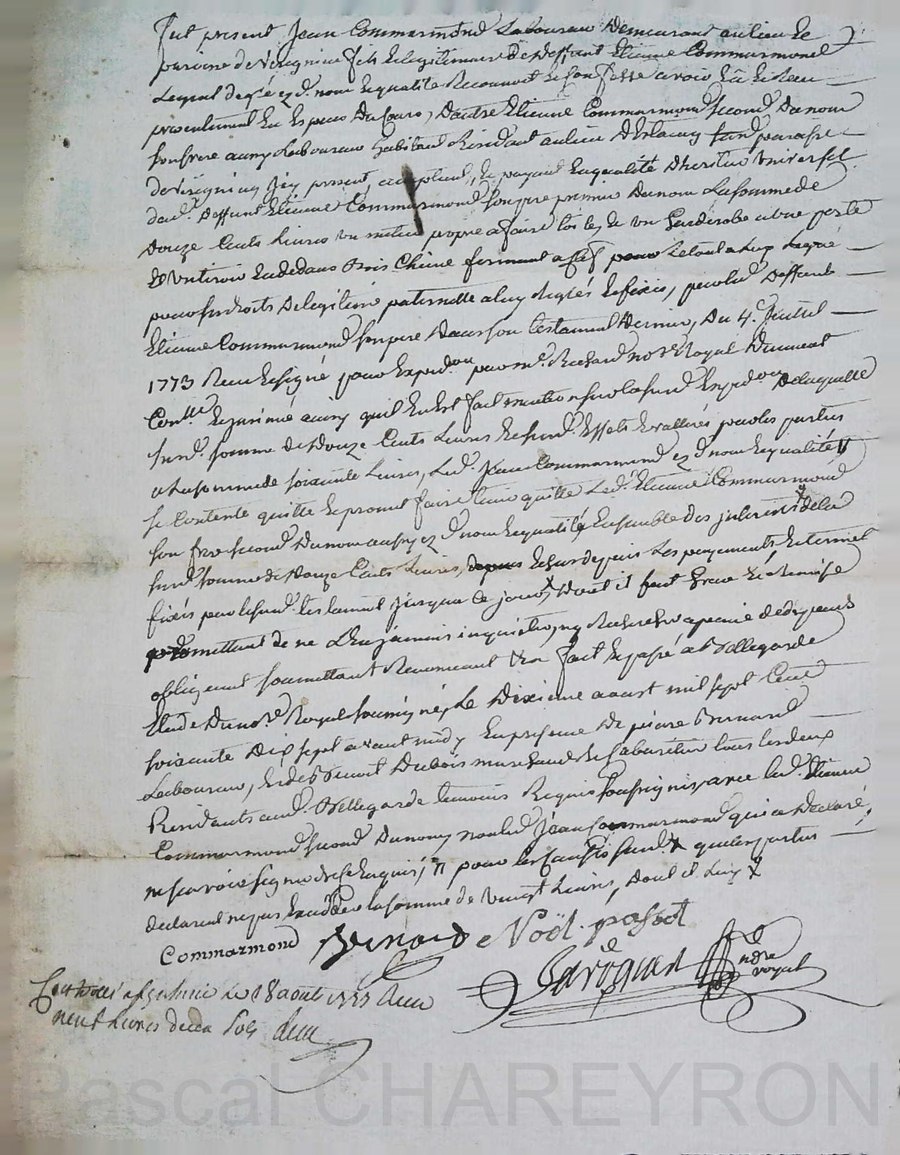 fut present Jean Commarmond Laboureur Demeurant au lieu et
paroisse de Virigneu fils Et legitimaire de deffunt Etienne Commarmond
Lequel de gré ez d. nom Et qualité Reconnoit Et Confesse avoir Eu Et Reçu
presentement En Especes Du Cours, D'autre Etienne Commarmond second Du nom
son frere aussy Laboureur habitant Residant au lieu susd. paroisse
de Virigneu icy present acceptant, Et payant En qualité D'heritier Universel
dud. Deffunt Etienne Commarmond son pere premier Du nom La somme de
Douze Cents Livres un propre a faire un Garderobe a une porte
Et un tiroir En dedans Bois Chene fermant a clef pour Le tout a Luy Legué
pour ses droits De legitime paternelle a luy Leguez Et fixés, par led. Deffunt
Etienne Commarmond son pere Dans son testament Dernier, Du 4e Juillet
1773 Reçu Et signé pour Expedon par me. Richard nore Royal Duement
Contllé Et insinué ainsy qu'il En Est fait mention sur la susd. Expedon De laquelle
susd. somme de Douze Cents Livres Et susd. Effets Evallués par les parties
a La somme de soixante Livres, Led. Jean Commarmond ez d. nom Et qualité
se Contente quitte Et promet faire tenir quitte Led. Etienne Commarmond
son frere second Du nom aussy ez d. nom Et qualité Ensemble des interets de la
susd. somme de Douze Cents Livres, Echus depuis Les payements Et termes
fixés par le susd. testament jusqu'a Ce jour, Dont il fait Grace Et Remise
promettant de ne L'en jamais inquieter, ny Rechercher a peine de depens
obligeant soumettant Renonceant &a fait Et passé a Bellegarde
Etude Du nore Royal soussigné, Le Dixieme aoust mil sept Cent
soixante Dix sept avant midy En presence De pierre Bernard
Laboureur, Et de Dubois marchand Et Cabaretier tous les deux
Residants aud. Bellegarde temoins Requis soussignés, avec led. Etienne
Commarmond second Du nom, non led. Jean Commarmond qui a Declaré
ne sçavoir signer de ce Enquis, pour les susd. que les parties
declarent ne pas Exceder la somme de Vingt Livres, Dont
Commarmond Bernard Noël
ndre royal
Contrôlé a le 18 aout 1777 Reçu
neuf Livres Sols
Pascal CHAREYRON